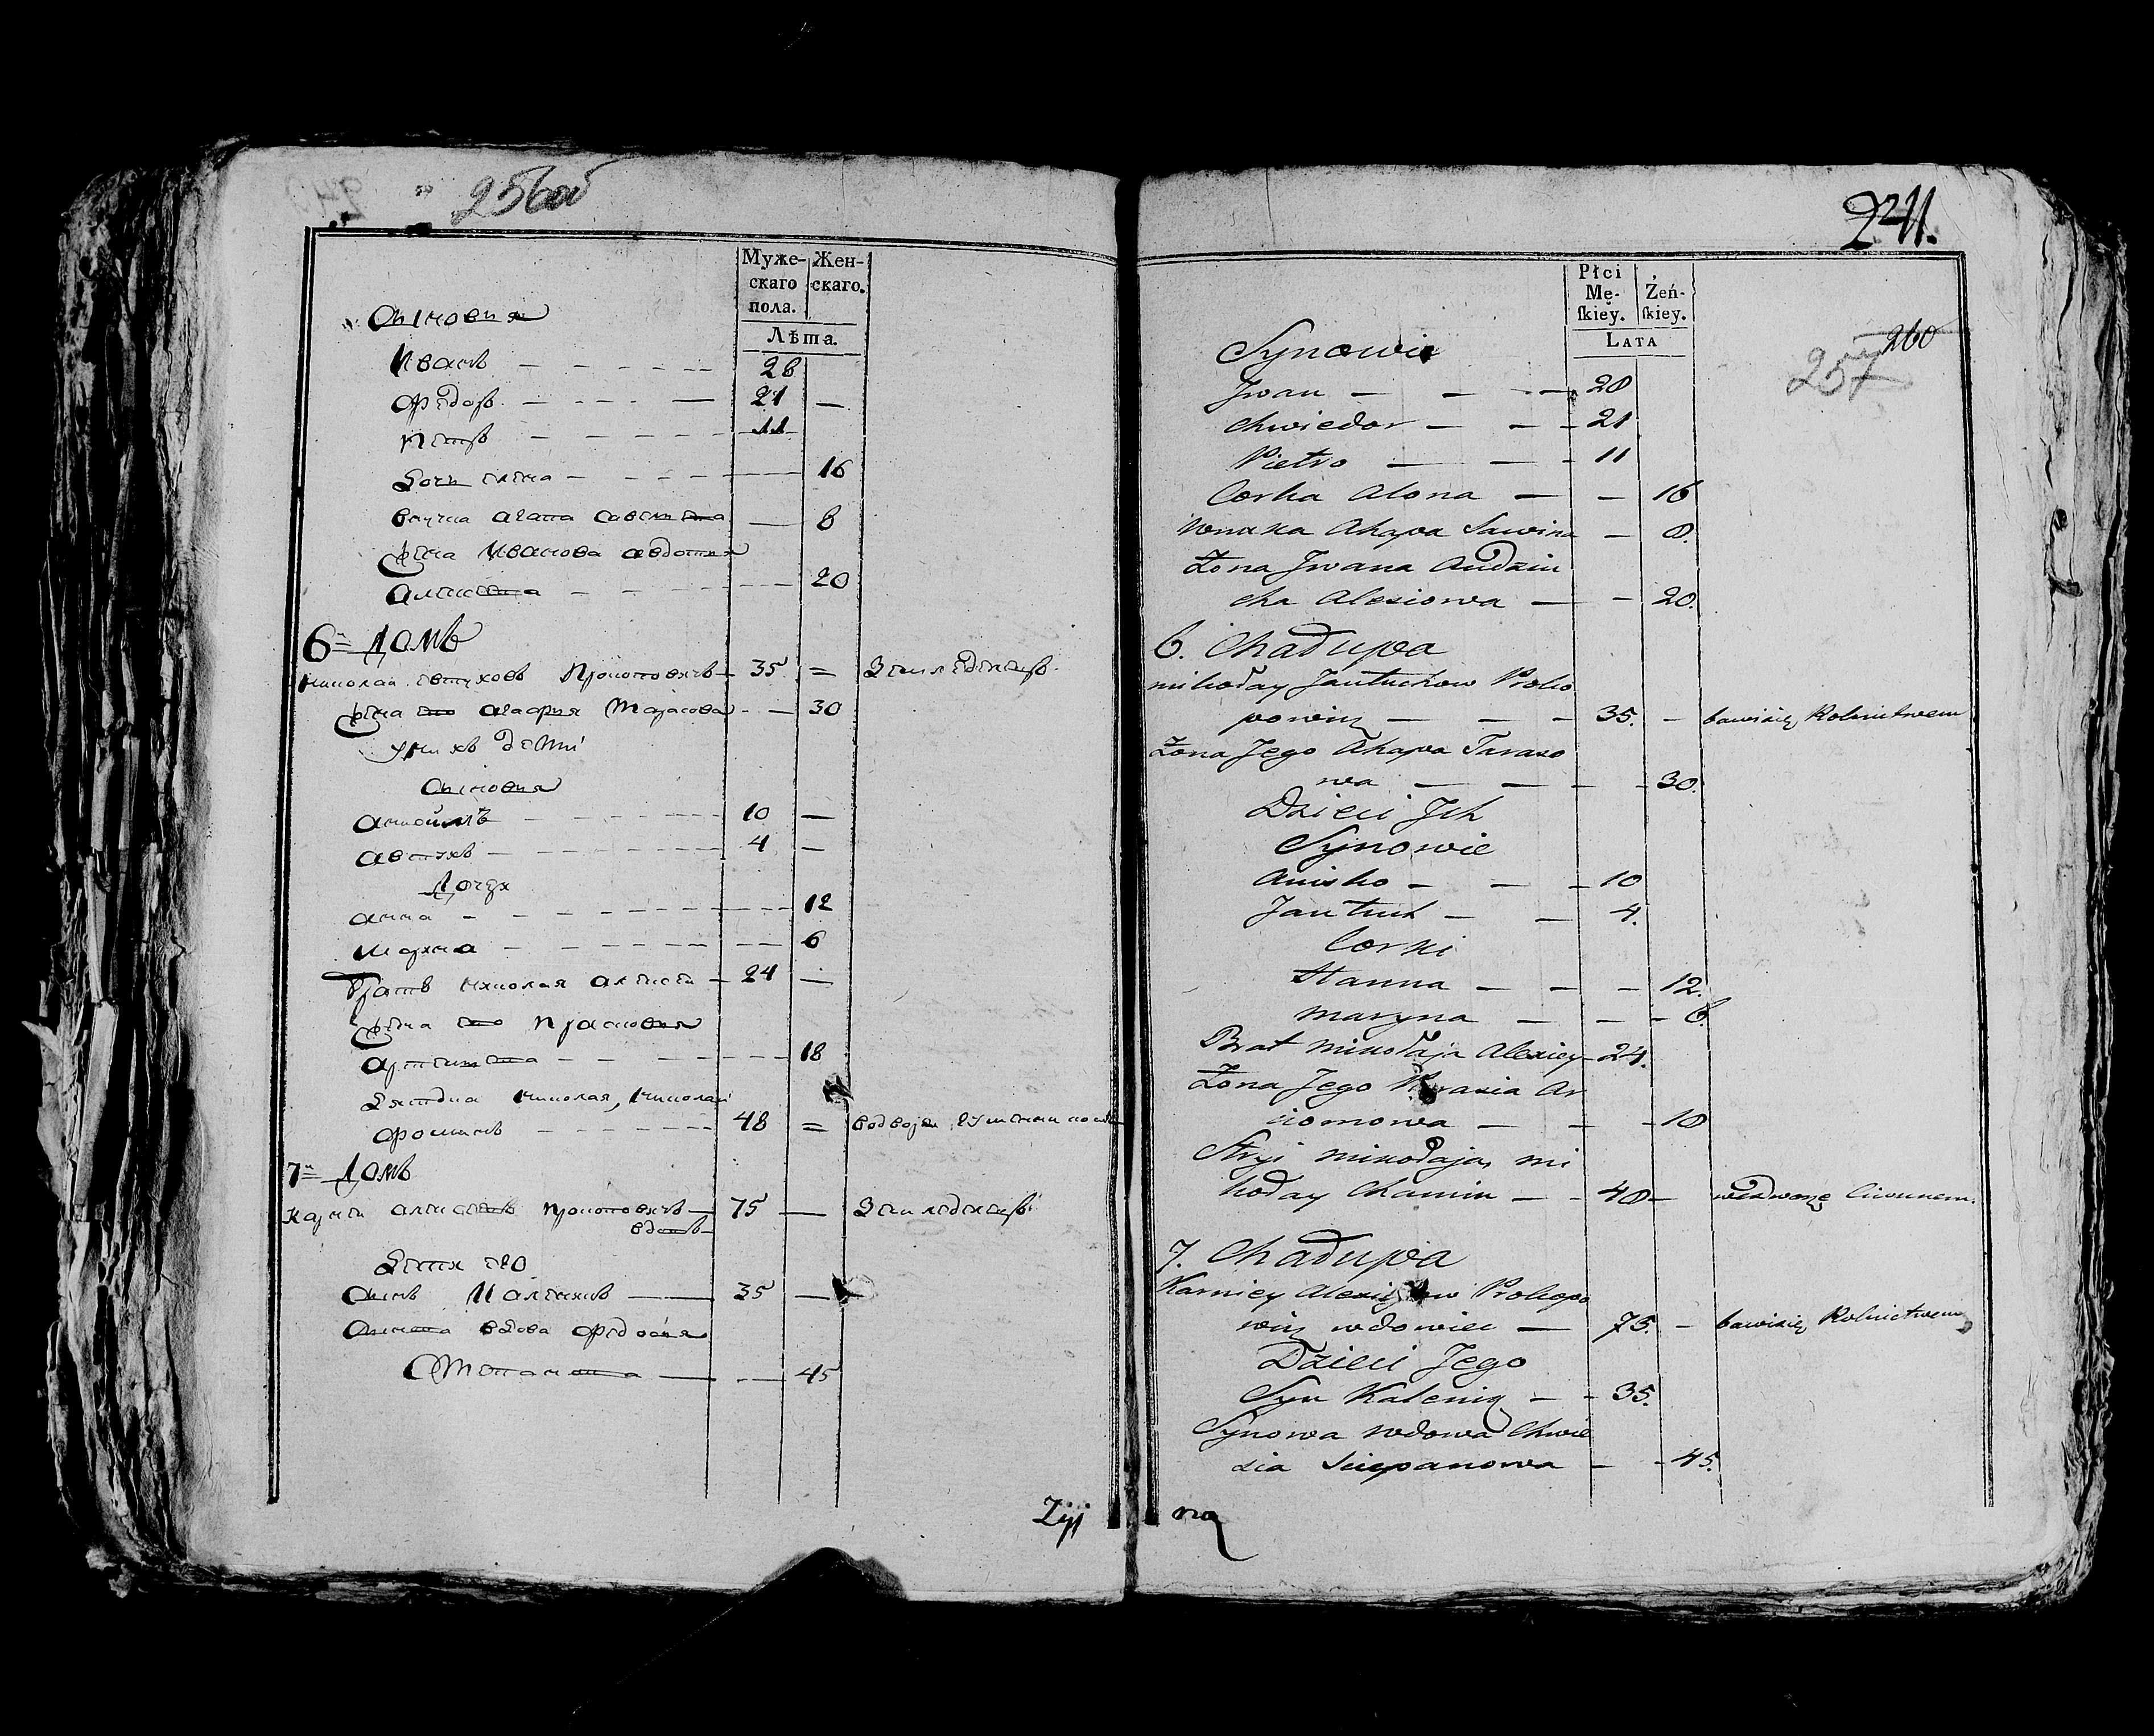 256об
Муже-
скаго
пола.
Жен-
скаго.
Лѣта.
Сыновья
Иванъ 28
Фѣдоръ 21 —
Петръ 11
Дочь елена 16
внучка агапа савелева — 8
Жена Иванова авдотья
20
6й Домъ
николай евтуховъ Прокоповичъ 35 = Земледелецъ
Жена его агафия Тарасова 30
у них дети
Сыновья
анисимъ 10 —
автухъ 4 —
Дочери
анна 12
марина 6
Братъ николая алексей 24 —
Жена его Прасковья
артемева 18
Дядя николая, николай
Фоминъ 48 =
7й Домъ
карней алексеевъ прокоповичъ 75 — Земледелецъ
вдовъ
Дети его
Сынъ Каленикъ 35 —
вдова Федосья
Степанова 45
Zijj
241.
260
257
Płci
Mę-
ſkiey.
Żeń-
ſkiey.
LATA
Synowie
Jwan — — — 28
Chwiedor — — 21
Pietro — — 11
Corka Alona — — 16
Wnuxka Ahapa Sawina — 8.
Żona Jwana Audziu
cha Alexiowa — — 20.
6. Chałupa
mikołay Jautuchow Proko
powicz — — — 35. — bawisię Rolnictwem
Żona Jego Ahapa Taraso
wa — — — 30.
Dzieci Jch
Synowie
Anisko — — 10
Jautuch — — 4.
Corki
Hanna — — — 12.
maryna — — — 6.
Brat mikołaja Alexiey 24.
Żona Jego Praxia Ar
ciomowa — — 18
Stryi mikołaja, mi
kołay Chamin — — 48 — we dworze Ciwunem.
7. Chałupa
Karniey Alexiejow Prokopo
wicz wdowiec — 75. — bawisię Rolnictwem
Dzieci Jego
Syn Kalenik — — 35.
Synowa wdowa Chwie
dzia Sciepanowa — — 45.